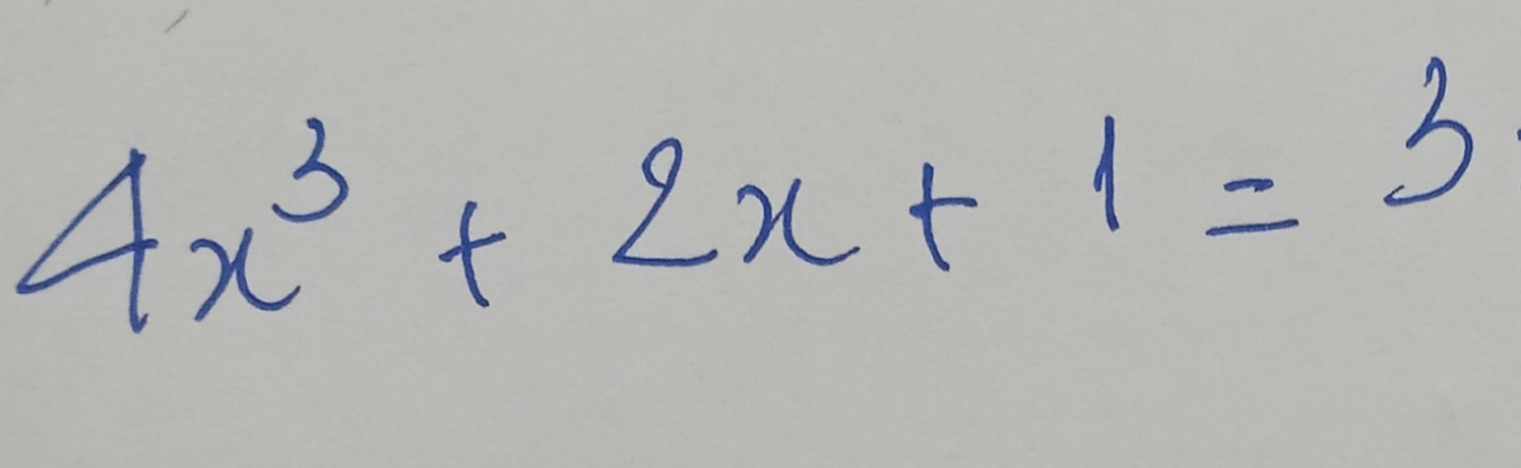 4x³ + 2x + 1 = 3